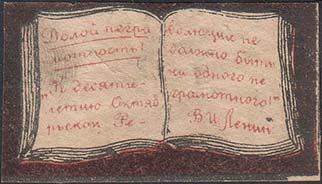 Долой негра
мотность!
"К десяти-
летию Октяб
рьской Ре-
волюции не
должно быть
ни одного не
грамотного!"
В И Ленин